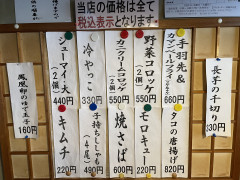 当店の価格は全て
税込表示となります。
手羽先&
カマンベールフライ
660円
野菜コロッケ
(2個)
550円
カニクリームコロッケ
(2個)
550円
冷やっこ
330円
シューマイ・大
(2個)
440円
タコの唐揚げ
820円
モロキュー
220円
焼さば
600円
子持ちししゃも
(4尾)
490円
キムチ
220円
長芋の千切り
330円
鳳凰卵のゆで玉子
160円